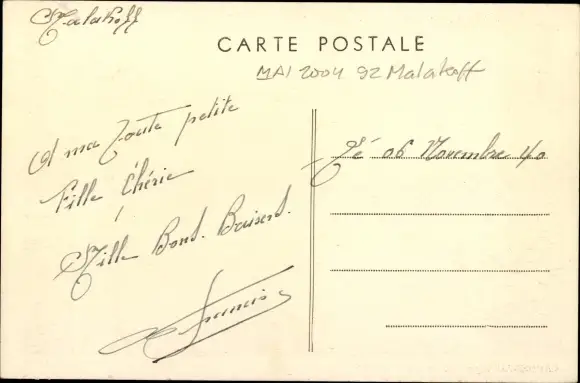 Malakoff
CARTE POSTALE
MAI 2004 92 Malakoff
A ma toute petite
Fille Chérie
Mille Bons. Baisers.
Francis
Le 06 Novembre 40